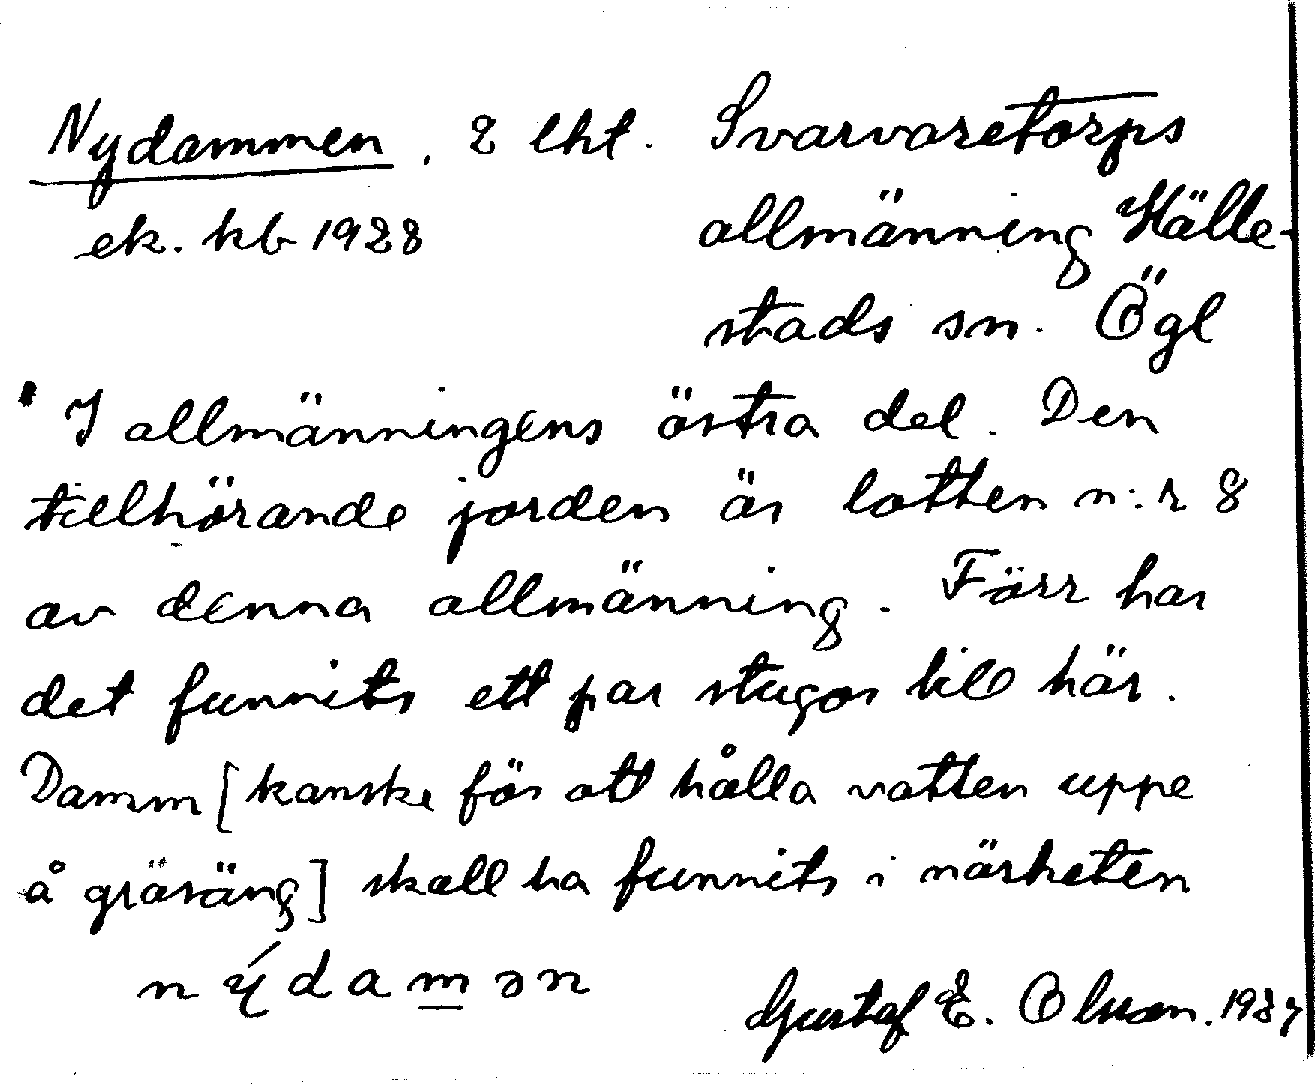 Nydammen, 2 lht. Svarvaretorps
ek. kb 1928 allmänning Hälle-
stads sn. Ögl
I allmänningens östra del. Den
tillhörande jorden är lotten n:r 8
av denna allmänning. Förr har
det funnits ett par stugor till här.
Damm [kanske för att hålla vatten uppe
å gräsäng] skall ha funnits i närheten
n ý d a m ə n
Gustaf E. Olsson. 1937